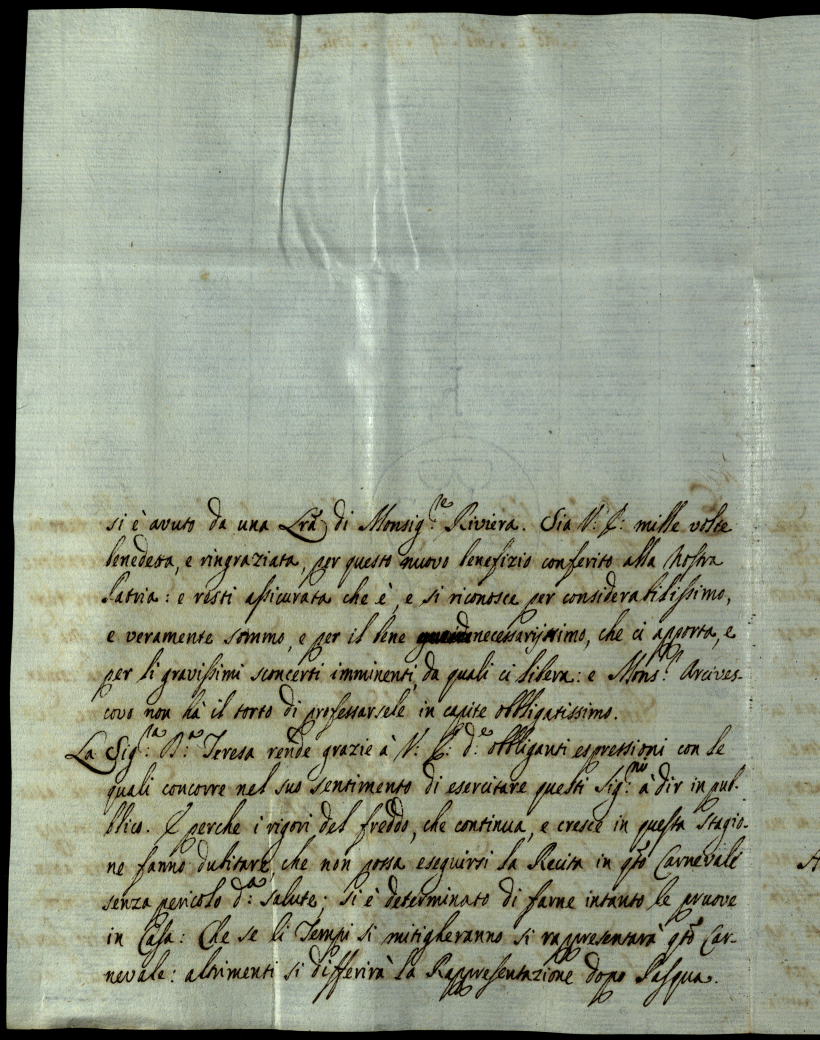 si è avuto da una Lrã di Monsig.re Riviera. Sia V: E: mille volte
benedetta, e ringraziata, per questo nuovo benefizio conferito alla nostra
Patria: e resti assicurata che è, e si riconosce per considerabilissimo,
e veramente sommo, e per il bene necessarijssimo, che ci apporta, e
per li gravissimi sconcerti imminenti, da quali ci libera: e Mons.r Arcives-
covo non hà il torto di professarsele in capite obbligatissimo.
La Sig:ra B:a Teresa rende grazie à V: E: d:e obbliganti espressioni con le
quali concorre nel suo sentimento di esercitare questi Sig:ni à dir in pub-
blico. E perche i rigori del freddo, che continua, e cresce in questa stagio-
ne fanno dubitare, che non possa eseguirsi la Recita in qsto Carnevale
senza pericolo d:a salute; si è determinato di farne intanto le pruove
in Casa: Che se li Tempi si mitigheranno si rappresentarà qsto Car-
nevale: altrimenti si differirà la Rappresentazione dopo Pasqua.